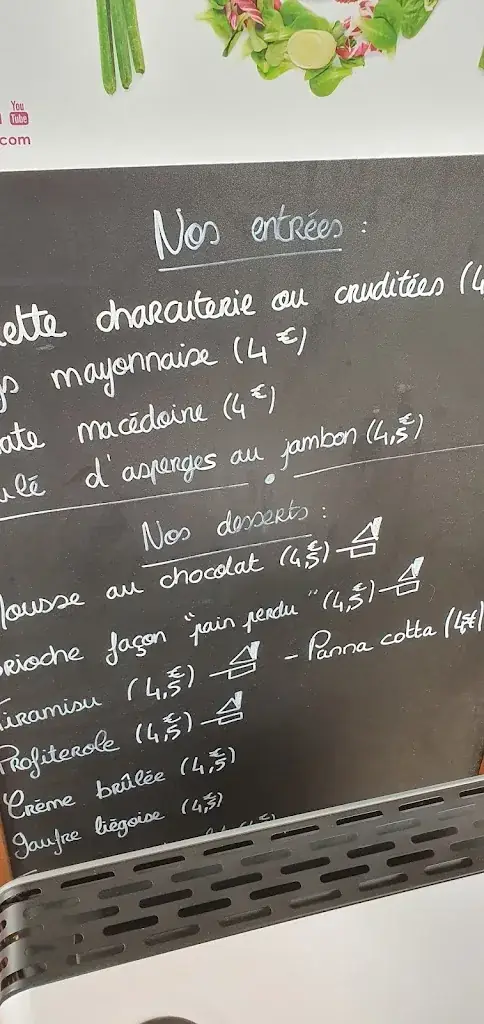 You
Tube
com
Nos entrées :
ette charcuterie ou crudités (4
gs mayonnaise (4€)
ate macédoine (4€)
ulé d'asperges au jambon (4,5€)
Nos desserts :
Mousse au chocolat (4,5€)
Brioche façon "pain perdu" (4,5€)
Tiramisu (4,5€) - Panna cotta (4€)
Profiterole (4,5€)
Crème brûlée (4,5€)
Gaufre liégoise (4,5€)